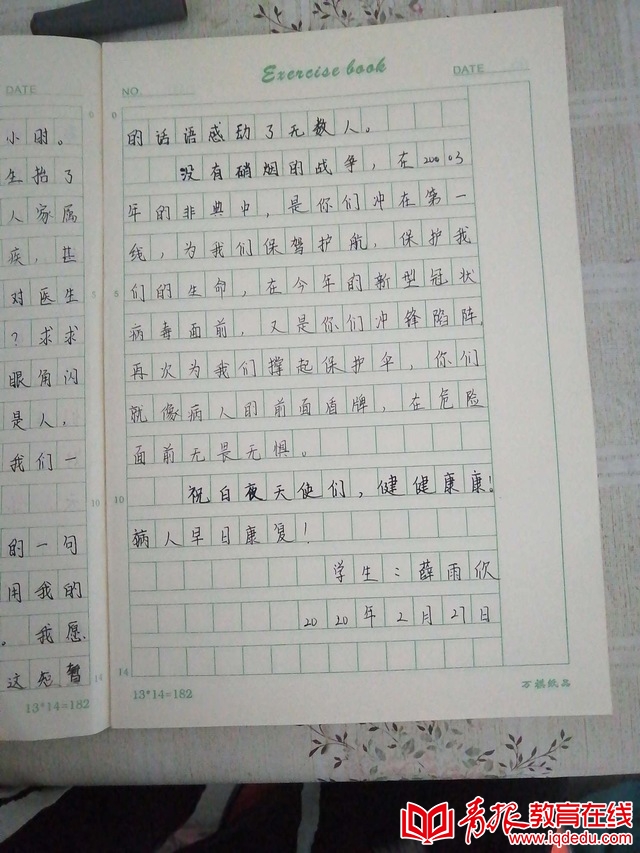 DATE
小时。
生抬了
人家属
疾，甚
对医生
？求求
眼角闪
是人，
我们一
的一句
用我的
。我愿
这短暂
13*14=182
Exercise book
NO.
DATE
0
0
的话语感动了无数人。
没有硝烟的战争，在20003
年的非典中，是你们冲在第一
线，为我们保驾护航，保护我
5
5
们的生命，在今年的新型冠状
病毒面前，又是你们冲锋陷阵，
再次为我们撑起保护伞，你们
就像病人的前面盾牌，在危险
面前无畏无惧。
10
10
祝白夜天使们，健健康康！
病人早日康复！
学生：薛雨欣
2020年2月27日
14
14
13*14=182
万祺纸品
青报教育在线
www.iqdedu.com